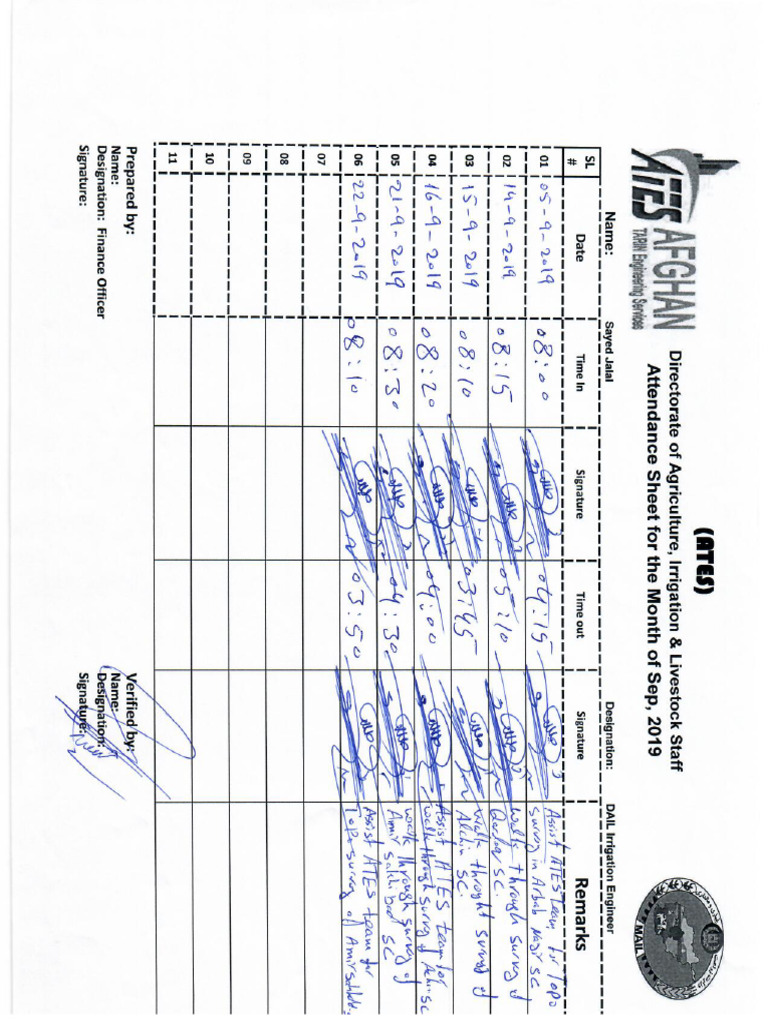 ATES AFGHAN
TARIN Engineering Services
(ATES)
Directorate of Agriculture, Irrigation & Livestock Staff
Attendance Sheet for the Month of Sep, 2019
MAIL
Name: Sayed Jalal Designation: DAIL Irrigation Engineer
SL # Date Time In Signature Time out Signature Remarks
01 05-9-2019 08:00 04:15 Assist ATES team for Topo survey in Arbab Nazir SC
02 14-9-2019 08:15 05:10 walk through survey of SC.
03 15-9-2019 08:10 03:45 walk throught survey of Alchin SC.
04 16-9-2019 08:20 04:00 Assist ATES team for walk through survey of Alchin SC
05 21-9-2019 08:30 04:30 walk through survey of Amir SC
06 22-9-2019 08:10 03:50 Assist ATES team for Topo survey of
07
08
09
10
11
Prepared by: Verified by:
Name: Name:
Designation: Finance Officer Designation:
Signature: Signature: